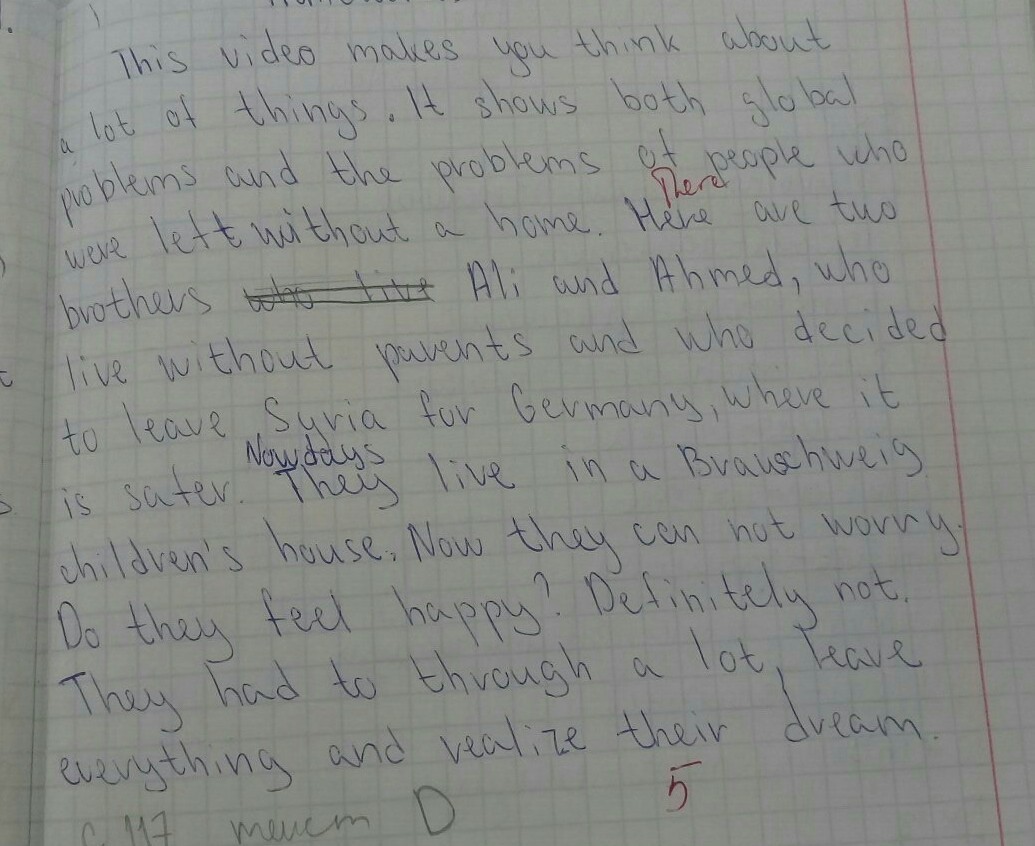 This video makes you think about
a lot of things. It shows both global
problems and the problems of people who
There
were left without a home. Here are two
brothers who live Ali and Ahmed, who
live without parents and who decided
to leave Syria for Germany, where it
Nowdays
is safer. They live in a Brauschweig
children's house. Now they can not worry.
Do they feel happy? Definitely not.
They had to through a lot, leave
everything and realize their dream.
5
с. 117 текст D